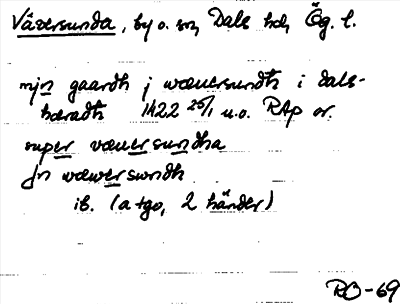 Väversunda, by o. sn, Dals hd, Ög. l.
mjn gaardh j wæuersundh i dals-
hæradh 1422 25/1 u.o. RAp or.
super væuersundha
Jn wæwerswndh
ib. (a tgo, 2 händer)
RO-69